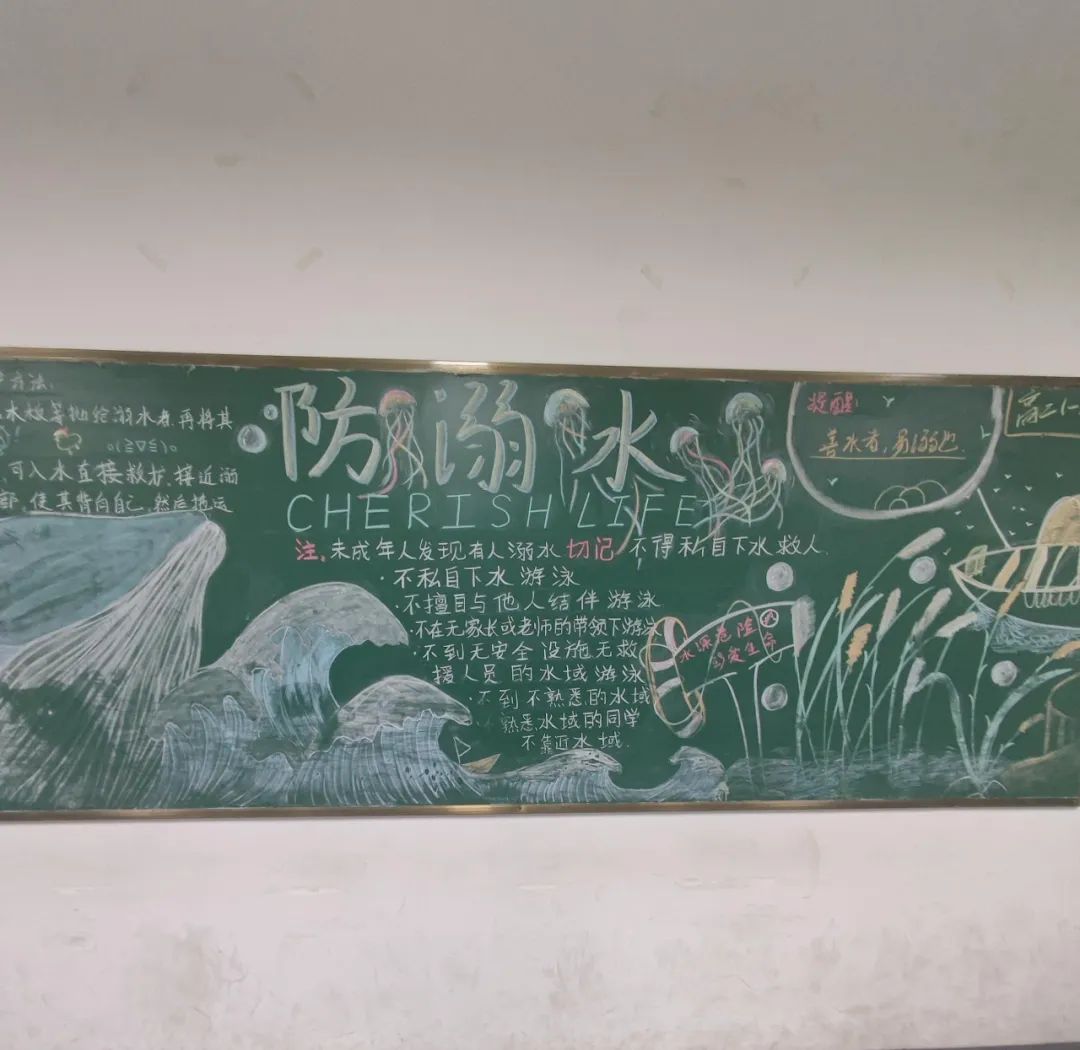 方法:
水救寻抛给溺水者,再将其
o(≧▽≦)o
可入水直接救护,接近溺
部,使其背向自己,然后拖运
防溺水
CHERISH LIFE
注:未成年人发现有人溺水切记 不得私自下水救人.
·不私自下水游泳
·不擅自与他人结伴游泳
·不在无家长或老师的带领下游泳
·不到无安全设施无救
援人员的水域游泳
·不到不熟悉的水域
熟悉水域的同学
不靠近水域.
水深危险
珍爱生命
提醒:
善水者,易溺也.
高二1-